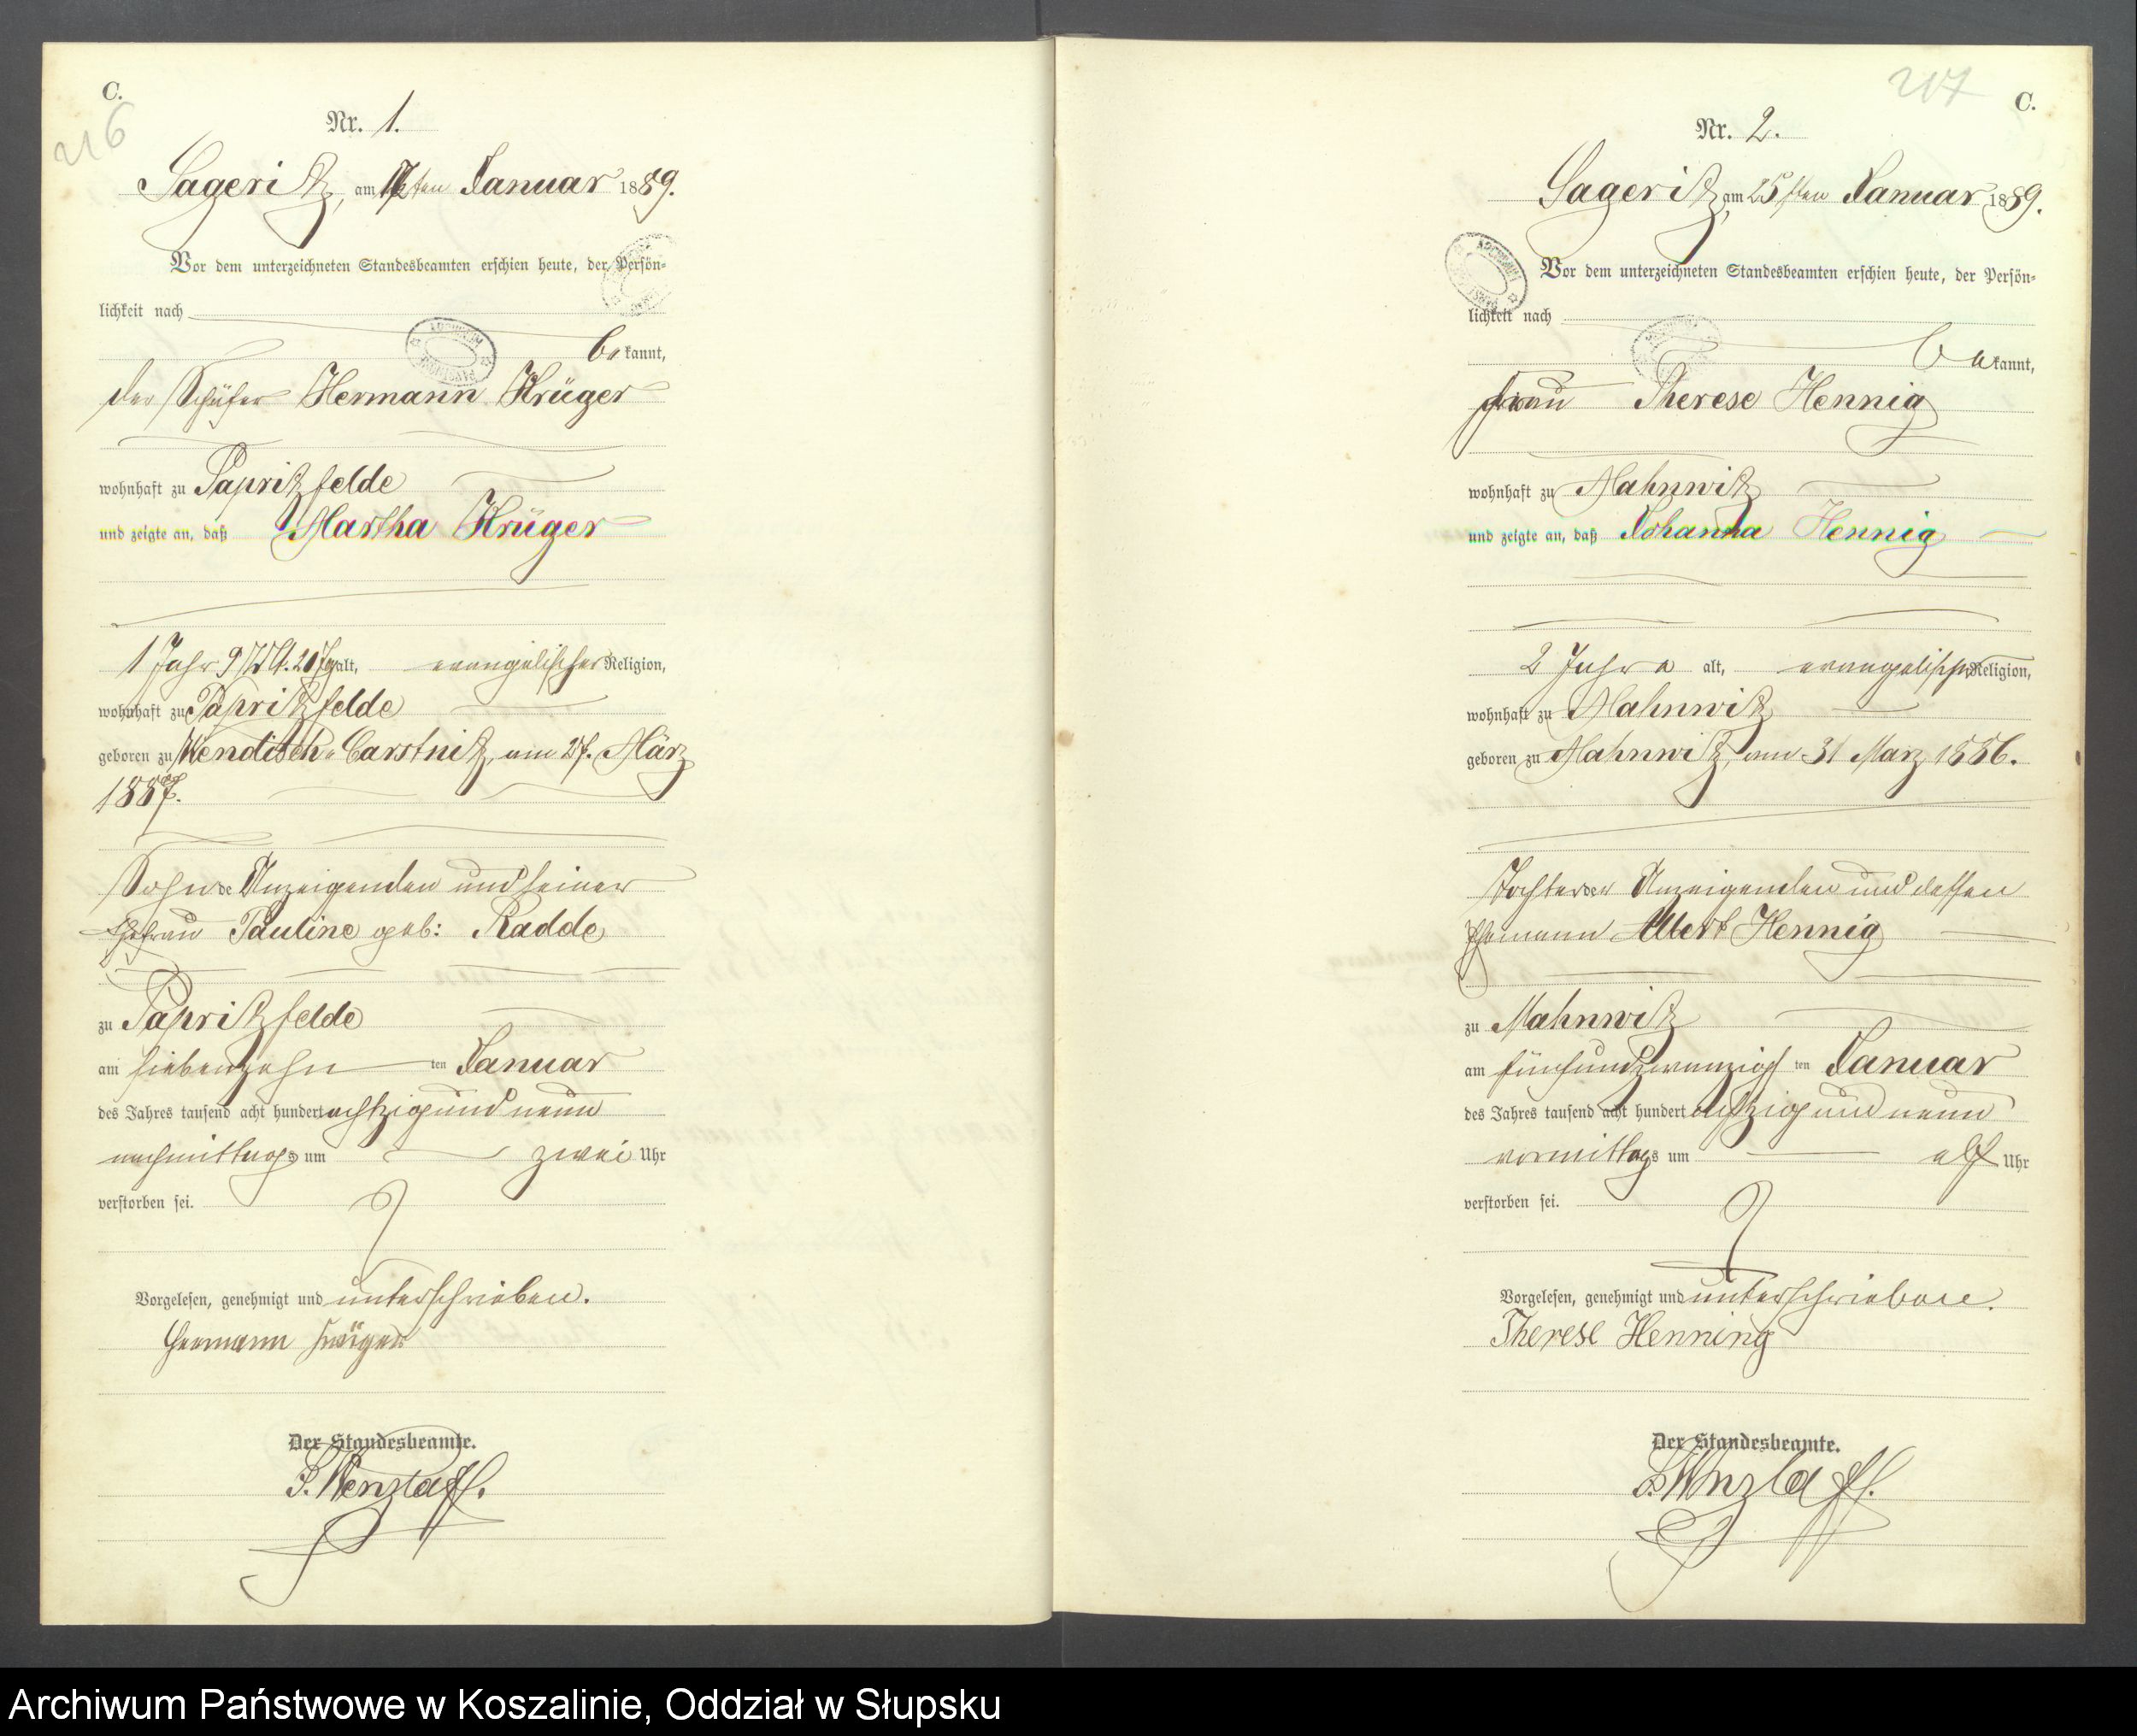 C.
216
Nr. 1.
Sageritz, am 17ten Januar 1889.
Vor dem unterzeichneten Standesbeamten erschien heute, der Persön-
lichkeit nach
bekannt,
der Schäfer Hermann Krüger
wohnhaft zu Papritzfelde
und zeigte an, daß Martha Krüger
1 Jahr 9 Mt. 20 Tg alt, evangelischer Religion,
wohnhaft zu Papritzfelde
geboren zu Wendisch-Carstnitz, am 27. März
1887.
Sohn de Anzeigenden und seiner
Ehefrau Pauline geb: Radde
zu Papritzfelde
am siebenzehn ten Januar
des Jahres tausend acht hundert achtzig und neun
nachmittags um zwei Uhr
verstorben sei.
Vorgelesen, genehmigt und unterschrieben.
Hermann Krüger
Der Standesbeamte.
Wenzlaff.
217
C.
Nr. 2.
Sageritz, am 25sten Januar 1889.
Vor dem unterzeichneten Standesbeamten erschien heute, der Persön-
lichkeit nach
bekannt,
Frau Therese Hennig
wohnhaft zu Mahnwitz
und zeigte an, daß Johanna Hennig
2 Jahre alt, evangelischer Religion,
wohnhaft zu Mahnwitz
geboren zu Mahnwitz, am 31 März 1886.
Tochter der Anzeigenden und dessen
Ehemann Albert Hennig
zu Mahnwitz
am fünfundzwanzigsten Januar
des Jahres tausend acht hundert achtzig und neun
vormittags um elf Uhr
verstorben sei.
Vorgelesen, genehmigt und unterschrieben.
Therese Henning
Der Standesbeamte.
Wenzlaff.
Archiwum Państwowe w Koszalinie, Oddział w Słupsku